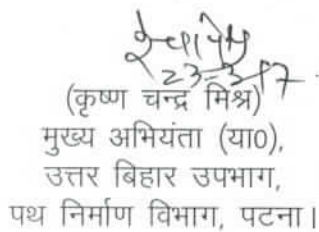 23-3-17
(कृष्ण चन्द्र मिश्र)
मुख्य अभियंता (या0),
उत्तर बिहार उपभाग,
पथ निर्माण विभाग, पटना।